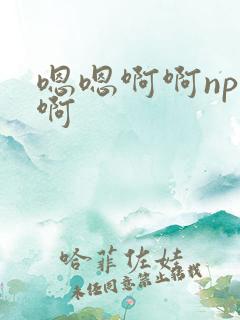 嗯嗯啊啊np
啊
哈菲佐娃
未经同意禁止转载